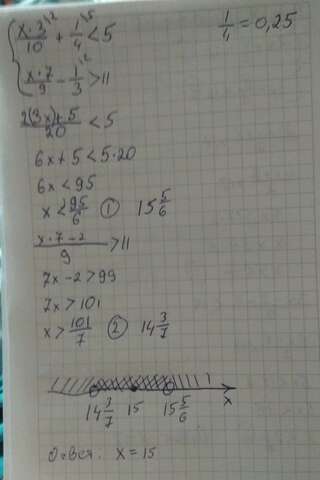 x·3/10 + 1/4 < 5
1/4 = 0,25
x·7/9 - 1/3 > 11
2(3x)+5/20 < 5
6x + 5 < 5·20
6x < 95
x < 95/6 ① 15 5/6
x·7-2/9 > 11
7x - 2 > 99
7x > 101
x > 101/7 ② 14 3/7
14 3/7 15 15 5/6 x
Ответ: x = 15